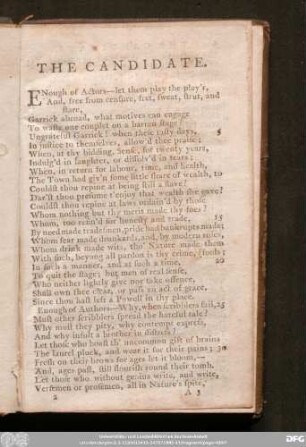 THE CANDIDATE.
ENough of Actors—let them play the play'r,
And, free from censure, fret, sweat, strut, and
stare.
Garrick abroad, what motives can engage
To waste one couplet on a barren stage?
Ungrateful Garrick! when these tasty days, 5
In justice to themselves, allow'd thee praise;
When, at thy bidding, Sense, for twenty years,
Indulg'd in laughter, or dissolv'd in tears;
When, in return for labour, time, and health,
The Town had giv'n some little share of wealth,
Couldst thou repine at being still a slave?
Dar'st thou presume t'enjoy that wealth she gave?
Couldst thou repine at laws ordain'd by those
Whom nothing but thy merit made thy foes?
Whom, too refin'd for honesty and trade, 15
By need made tradesmen, pride had bankrupts made;
Whom fear made drunkards, and, by modern rules,
Whom drink made wits, tho' Nature made them
With such, beyong all pardon is thy crime, [fools;
In such a manner, and at such a time, 20
To quit the stage; but men of real sense,
Who neither lightly give nor take offence,
Shall own thee clear, or pass an act of grace,
Since thou hast left a Powell in thy place.
Enough of Authors—Why, when scribblers fail, 25
Must other scribblers spread the hateful tale?
Why must they pity, why contempt express,
And why insult a brother in distress?
Let those who boast th' uncommon gift of brains
The laurel pluck, and wear it for their pains; 30
Fresh on their brows for ages let it bloom,
And, ages past, still flourish round their tomb.
Let those who without genius write, and write,
Versemen or prosemen, all in Nature's spite,
2 A 3